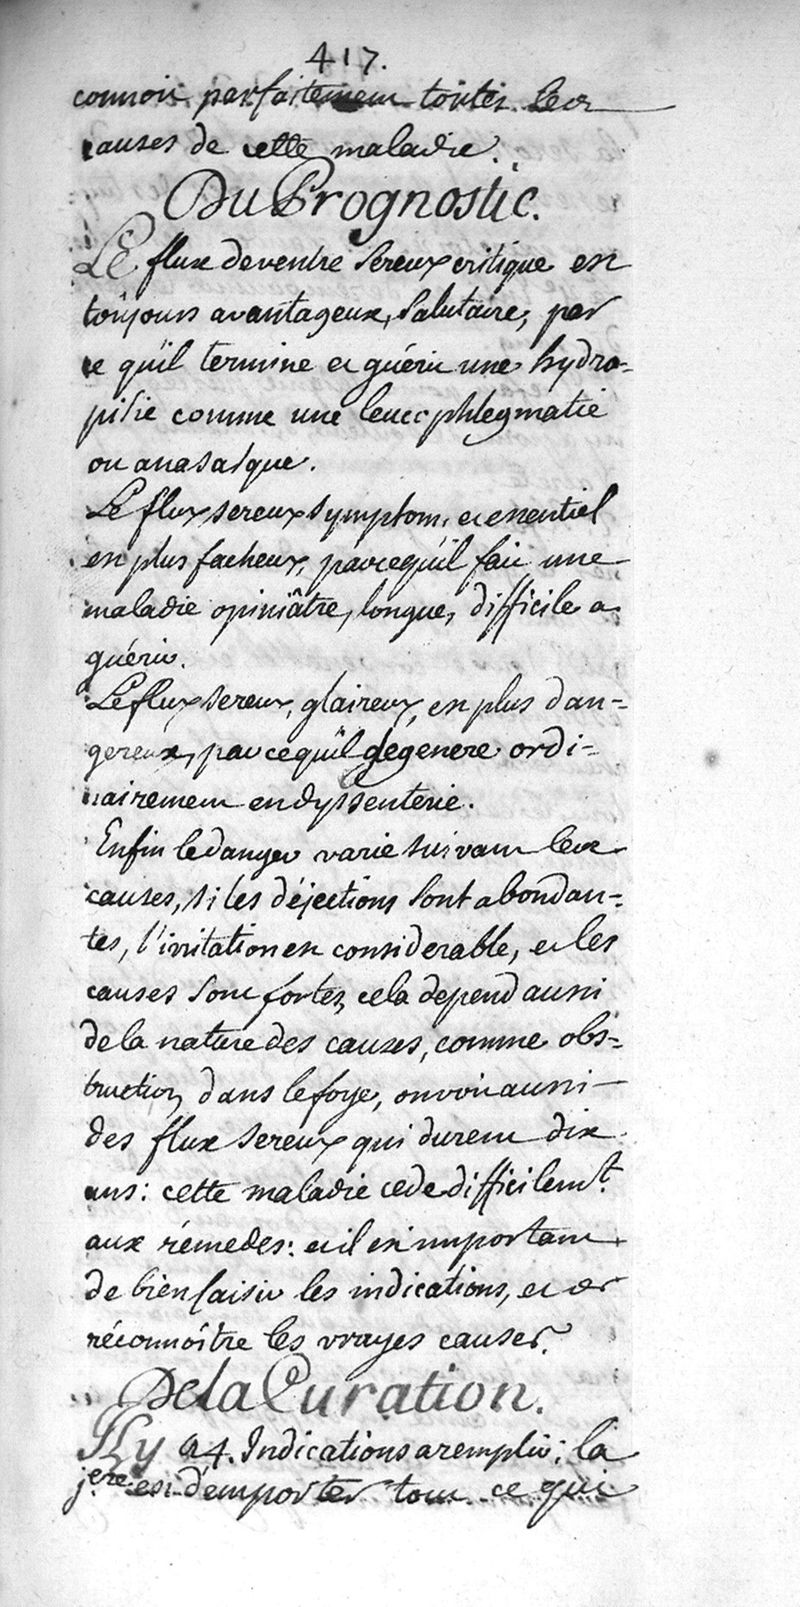 417.
connoit parfaitement toutes les
causes de cette maladie.
Du Prognostic.
Le flux de ventre sereux critique est
toujours avantageux, salutaire, par
ce qu'il termine et guérit une hydro=
pisie comme une leucophlegmatie
ou anasarque.
Le flux sereux symptom. et essentiel
est plus facheux, parcequ'il fait une
maladie opiniâtre, longue, difficile a
guérir.
Le flux sereux, glaireux, est plus dan=
gereux, parcequ'il dégenere ordi=
nairement en dyssenterie.
Enfin le danger varie suivant les
causes, si les déjections sont abondan=
tes, l'irritation est considerable, et les
causes sont fortes, cela depend aussi
de la nature des causes, comme obs=
truction dans le foye, on voit aussi
des flux sereux qui durent dix
ans: cette maladie cede difficilemt.
aux rémedes: et il est important
de bien saisir les indications, et de
réconnoitre les vrayes causes.
De la Curation.
Il y a 4. Indications a remplir: la
j.ere est d'emporter tout ce qui